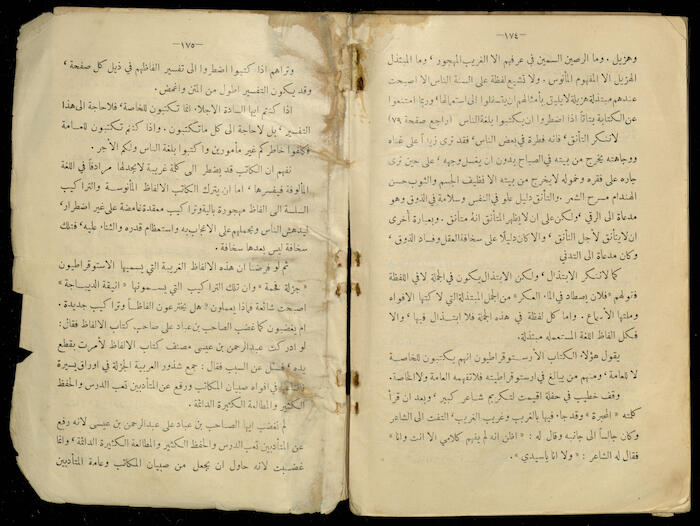 —١٧٤—
وهزيل. وما الرصين السمين في عرفهم الا الغريب المهجور، وما المبتذل
الهزيل الا المفهوم المأنوس. ولا تشيع لفظة على السنة الناس الا اصبحت
عندهم مبتذلة هزيلة لا يليق بأمثالهم ان يتسفلوا الى استعمالها، وربما امتنعوا
عن الكتابة بتاتاً اذا اضطروا ان يكتبوا بلغة الناس (راجع صفحة ٧٩)
لا تنكر التأنق، فانه فطرة في بعض الناس، فقد ترى زيداً على غناه
ووجاهته يخرج من بيته في الصباح بدون ان يغسل وجهه، على حين ترى
جاره على فقره وخموله لا يخرج من بيته الا نظيف الجسم والثوب حسن
الهندام مسرح الشعر. والتأنق دليل علو في النفس وسلامة في الذوق وهو
مدعاة الى الرقي، ولكن على ان لا يظهر المتأنق انه متأنق. وبعبارة أخرى
ان لا يتأنق لأجل التأنق، والا كان دليلاً على سخافة العقل وفساد الذوق،
وكان مدعاة الى التدني
كما لا ننكر الابتذال، ولكن الابتذال يكون في الجملة لا في اللفظة
فقولهم «فلان يصطاد في الماء العكر» من الجمل المبتذلة التي لاكتها الافواه
وملتها الأسماع. واما كل لفظة في هذه الجملة فلا ابتذال فيها، والا
فكل الفاظ اللغة المستعملة مبتذلة.
يقول هؤلاء الكتاب الأرستوقراطيون انهم يكتبون للخاصة
لا للعامة، ومنهم من يبالغ في ارستوقراطيته فلا تفهمه العامة ولا الخاصة.
وقف خطيب في حفلة اقيمت لتكريم شاعر كبير، وبعد ان قرأ
كلمته «المحبرة» وقد جاء فيها بالغريب وغريب الغريب، التفت الى الشاعر
وكان جالساً الى جانبه وقال له: «اظن انه لم يفهم كلامي الا انت وانا»
فقال له الشاعر: «ولا انا يا سيدي».
—١٧٥—
وتراهم اذا كتبوا اضطروا الى تفسير الفاظهم في ذيل كل صفحة،
وقد يكون التفسير اطول من المتن واغمض.
اذا كنتم ايها السادة الاجلاء انما تكتبون للخاصة، فلا حاجة الى هذا
التفسير، بل لا حاجة الى كل ما تكتبون. واذا كنتم تكتبون للعامة
فكلفوا خاطركم غير مأمورين واكتبوا بلغة الناس ولكم الأجر.
نفهم ان الكاتب قد يضطر الى كلمة غريبة لا يجد لها مرادفاً في اللغة
المألوفة فيفسرها، اما ان يترك الكاتب الالفاظ المأنوسة والتراكيب
السلسة الى الفاظ مهجورة بالية وتراكيب معقدة غامضة على غير اضطرار،
ليدهش الناس ويحملهم على الاعجاب به واستعظام قدره والثناء عليه، فتلك
سخافة ليس بعدها سخافة.
ثم لو فرضنا ان هذه الالفاظ الغريبة التي يسميها الارستوقراطيون
«جزلة فخمة» وان تلك التراكيب التي يسمونها «انيقة الديباجة»
اصبحت شائعة فماذا يعملون «هل يخترعون الفاظاً وتراكيب جديدة.
ام يغضبون كما غضب الصاحب بن عباد على صاحب كتاب الالفاظ فقال:
لو ادركت عبد الرحمن بن عيسى مصنف كتاب الالفاظ لأمرت بقطع
يده، فسئل عن السبب فقال: جمع شذور العربية الجزلة في اوراق يسيرة
في افواه صبيان المكاتب ورفع عن المتأدبين تعب الدرس والحفظ
الكثير والمطالعة الكثيرة الدائمة.
لم يغضب ايها الصاحب بن عباد على عبد الرحمن بن عيسى لانه رفع
عن المتأدبين تعب الدرس والحفظ الكثير والمطالعة الكثيرة الدائمة، وانما
غضبت لانه حاول ان يجعل من صبيان المكاتب وعامة المتأدبين